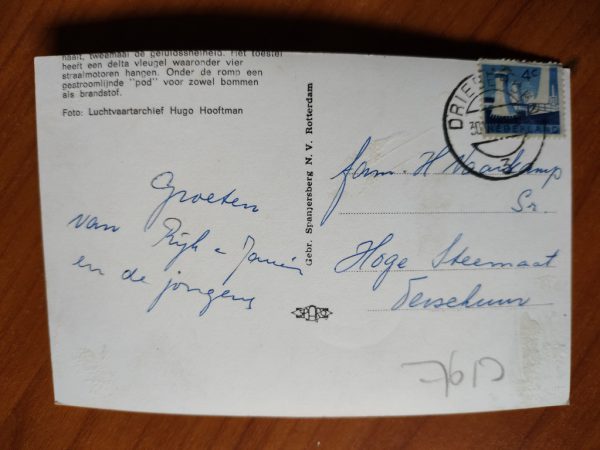 haalt, tweemaal de geluidssnelheid. Het toestel
heeft een delta vleugel waaronder vier
straalmotoren hangen. Onder de romp een
gestroomlijnde "pod" voor zowel bommen
als brandstof.
Foto: Luchtvaartarchief Hugo Hooftman
Groeten
van Rijk
en de jongens
Gebr. Spanjersberg N. V. Rotterdam
4c
NEDERLAND
DRIE
Fam. H
Sr.
Hoge Steemaat